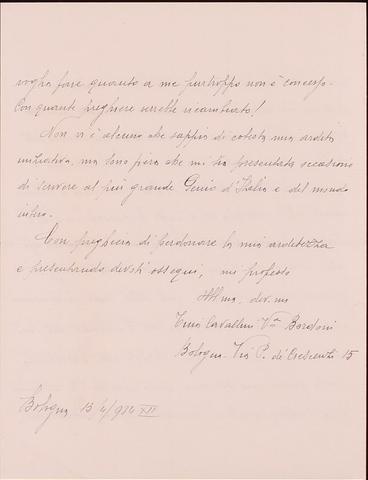 voglia fare quanto a me purtroppo non è concesso.
Con quante preghiere verrebbe ricambiato!
Non vi è alcuno che sappia di cotesta mia ardita
iniziativa, ma sono fiera che mi sia presentata occasione
di scrivere al più grande Genio d'Italia e del mondo
intero.
Con preghiera di perdonare la mia arditezza
e presentando devoti ossequi, mi professo
dev.ma
Cavallini V.va Bordoni
Bologna - Via P. de' Crescenzi 15
Bologna, 13/4/934 XII